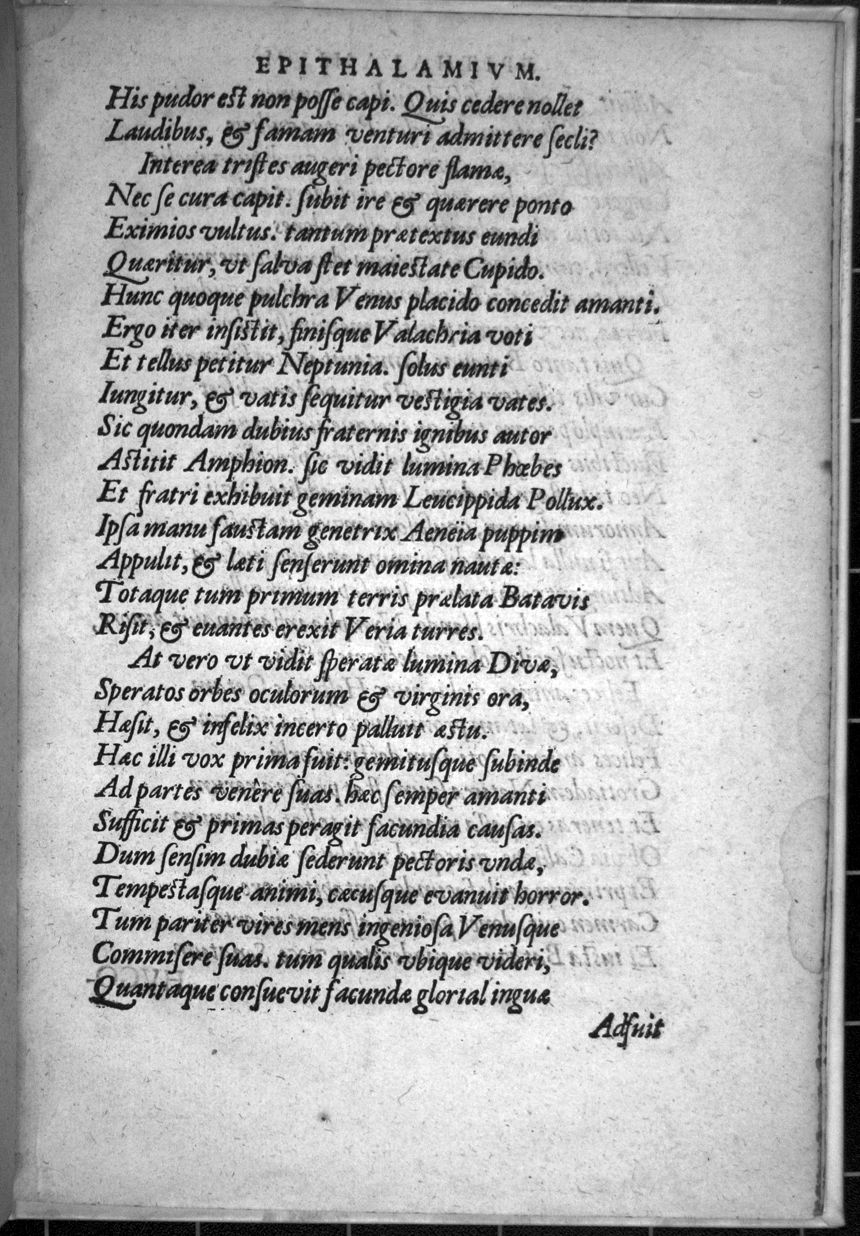 EPITHALAMIVM.
His pudor est non posse capi. Quis cedere nollet
Laudibus, & famam venturi admittere secli?
Interea tristes augeri pectore flamæ,
Nec se cura capit. subit ire & quærere ponto
Eximios vultus. tantum prætextus eundi
Quæritur, vt salva stet maiestate Cupido.
Hunc quoque pulchra Venus placido concedit amanti.
Ergo iter insistit, finisque Valachria voti
Et tellus petitur Neptunia. solus eunti
Iungitur, & vatis sequitur vestigia vates.
Sic quondam dubius fraternis ignibus autor
Astitit Amphion. sic vidit lumina Phœbes
Et fratri exhibuit geminam Leucippida Pollux.
Ipsa manu faustam genetrix Aeneia puppim
Appulit, & læti senserunt omina nautæ:
Totaque tum primum terris prælata Batavis
Risit, & euantes erexit Veria turres.
At vero vt vidit speratæ lumina Divæ,
Speratos orbes oculorum & virginis ora,
Hæsit, & infelix incerto palluit æstu.
Hæc illi vox prima fuit: gemitusque subinde
Ad partes venêre suas. hæc semper amanti
Sufficit & primas peragit facundia causas.
Dum sensim dubiæ sederunt pectoris vndæ,
Tempestasque animi, cæcusque evanuit horror.
Tum pariter vires mens ingeniosa Venusque
Commisere suas. tum qualis vbique videri,
Quantaque consuevit facundæ glorial inguæ
Adfuit